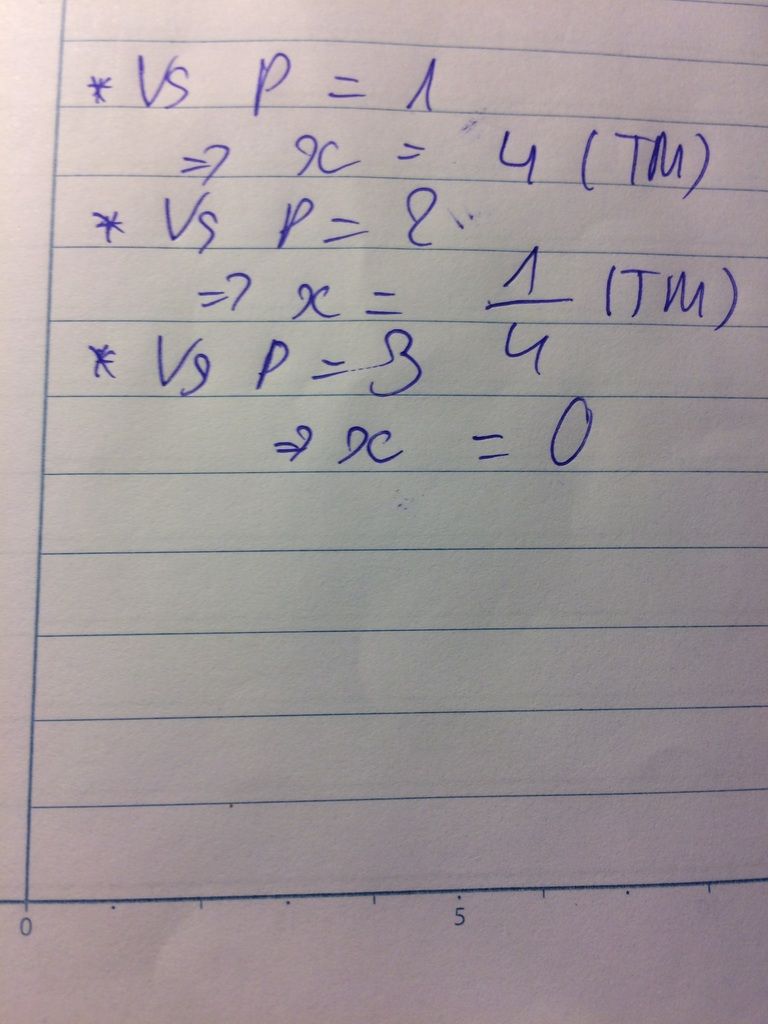 * Vs P = 1
=> x = 4 (TM)
* Vs P = 2
=> x = 1/4 (TM)
* Vs P = 3
=> x = 0
0 5